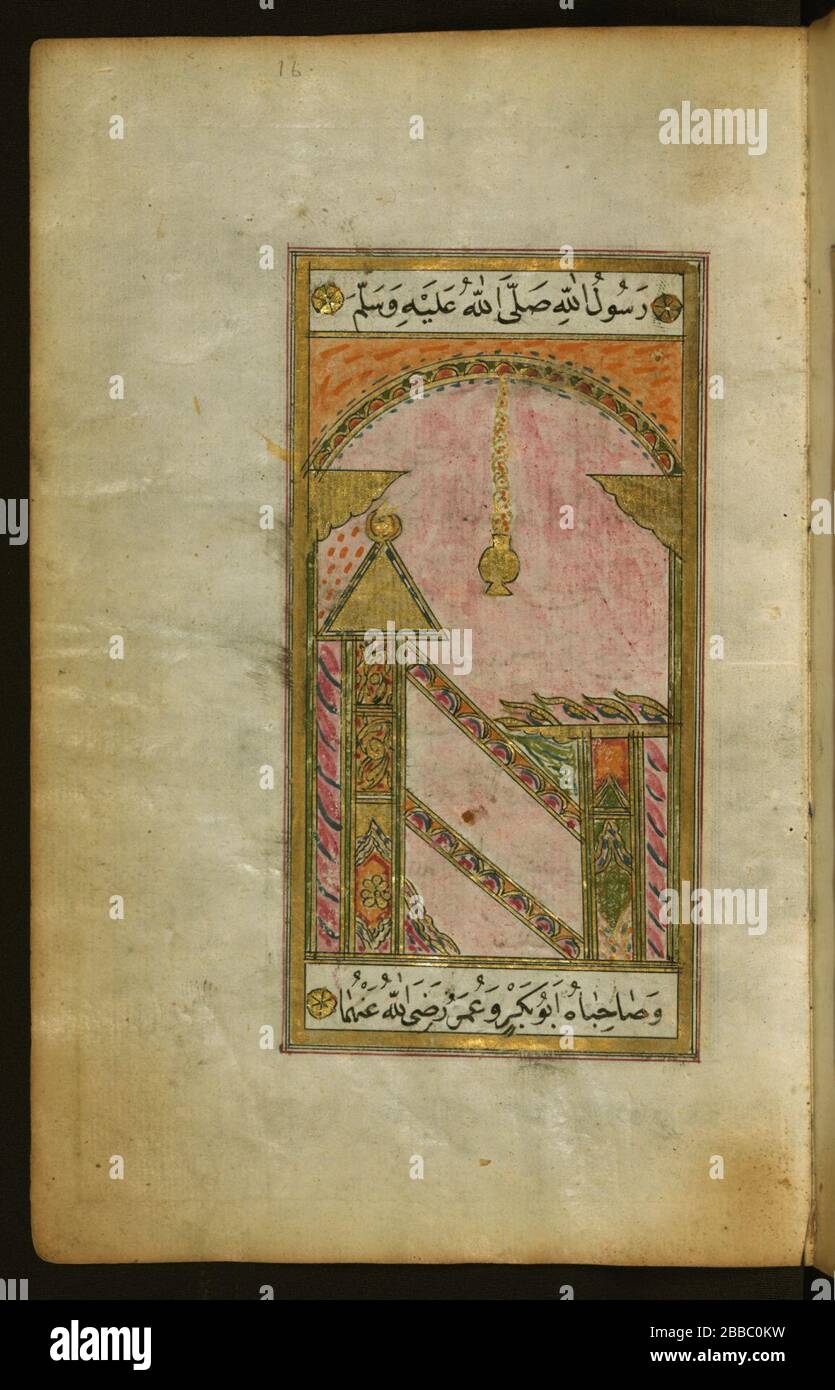 16
رَسُولُ اللهِ صَلَّى اللهُ عَلَيْهِ وَسَلَّمَ
وَصَاحِبَاهُ اَبُو بَكْرٍ وَعُمَرُ رَضِىَ اللهُ عَنْهُمَا
alamy
Image ID: 2BBC0KW
www.alamy.com